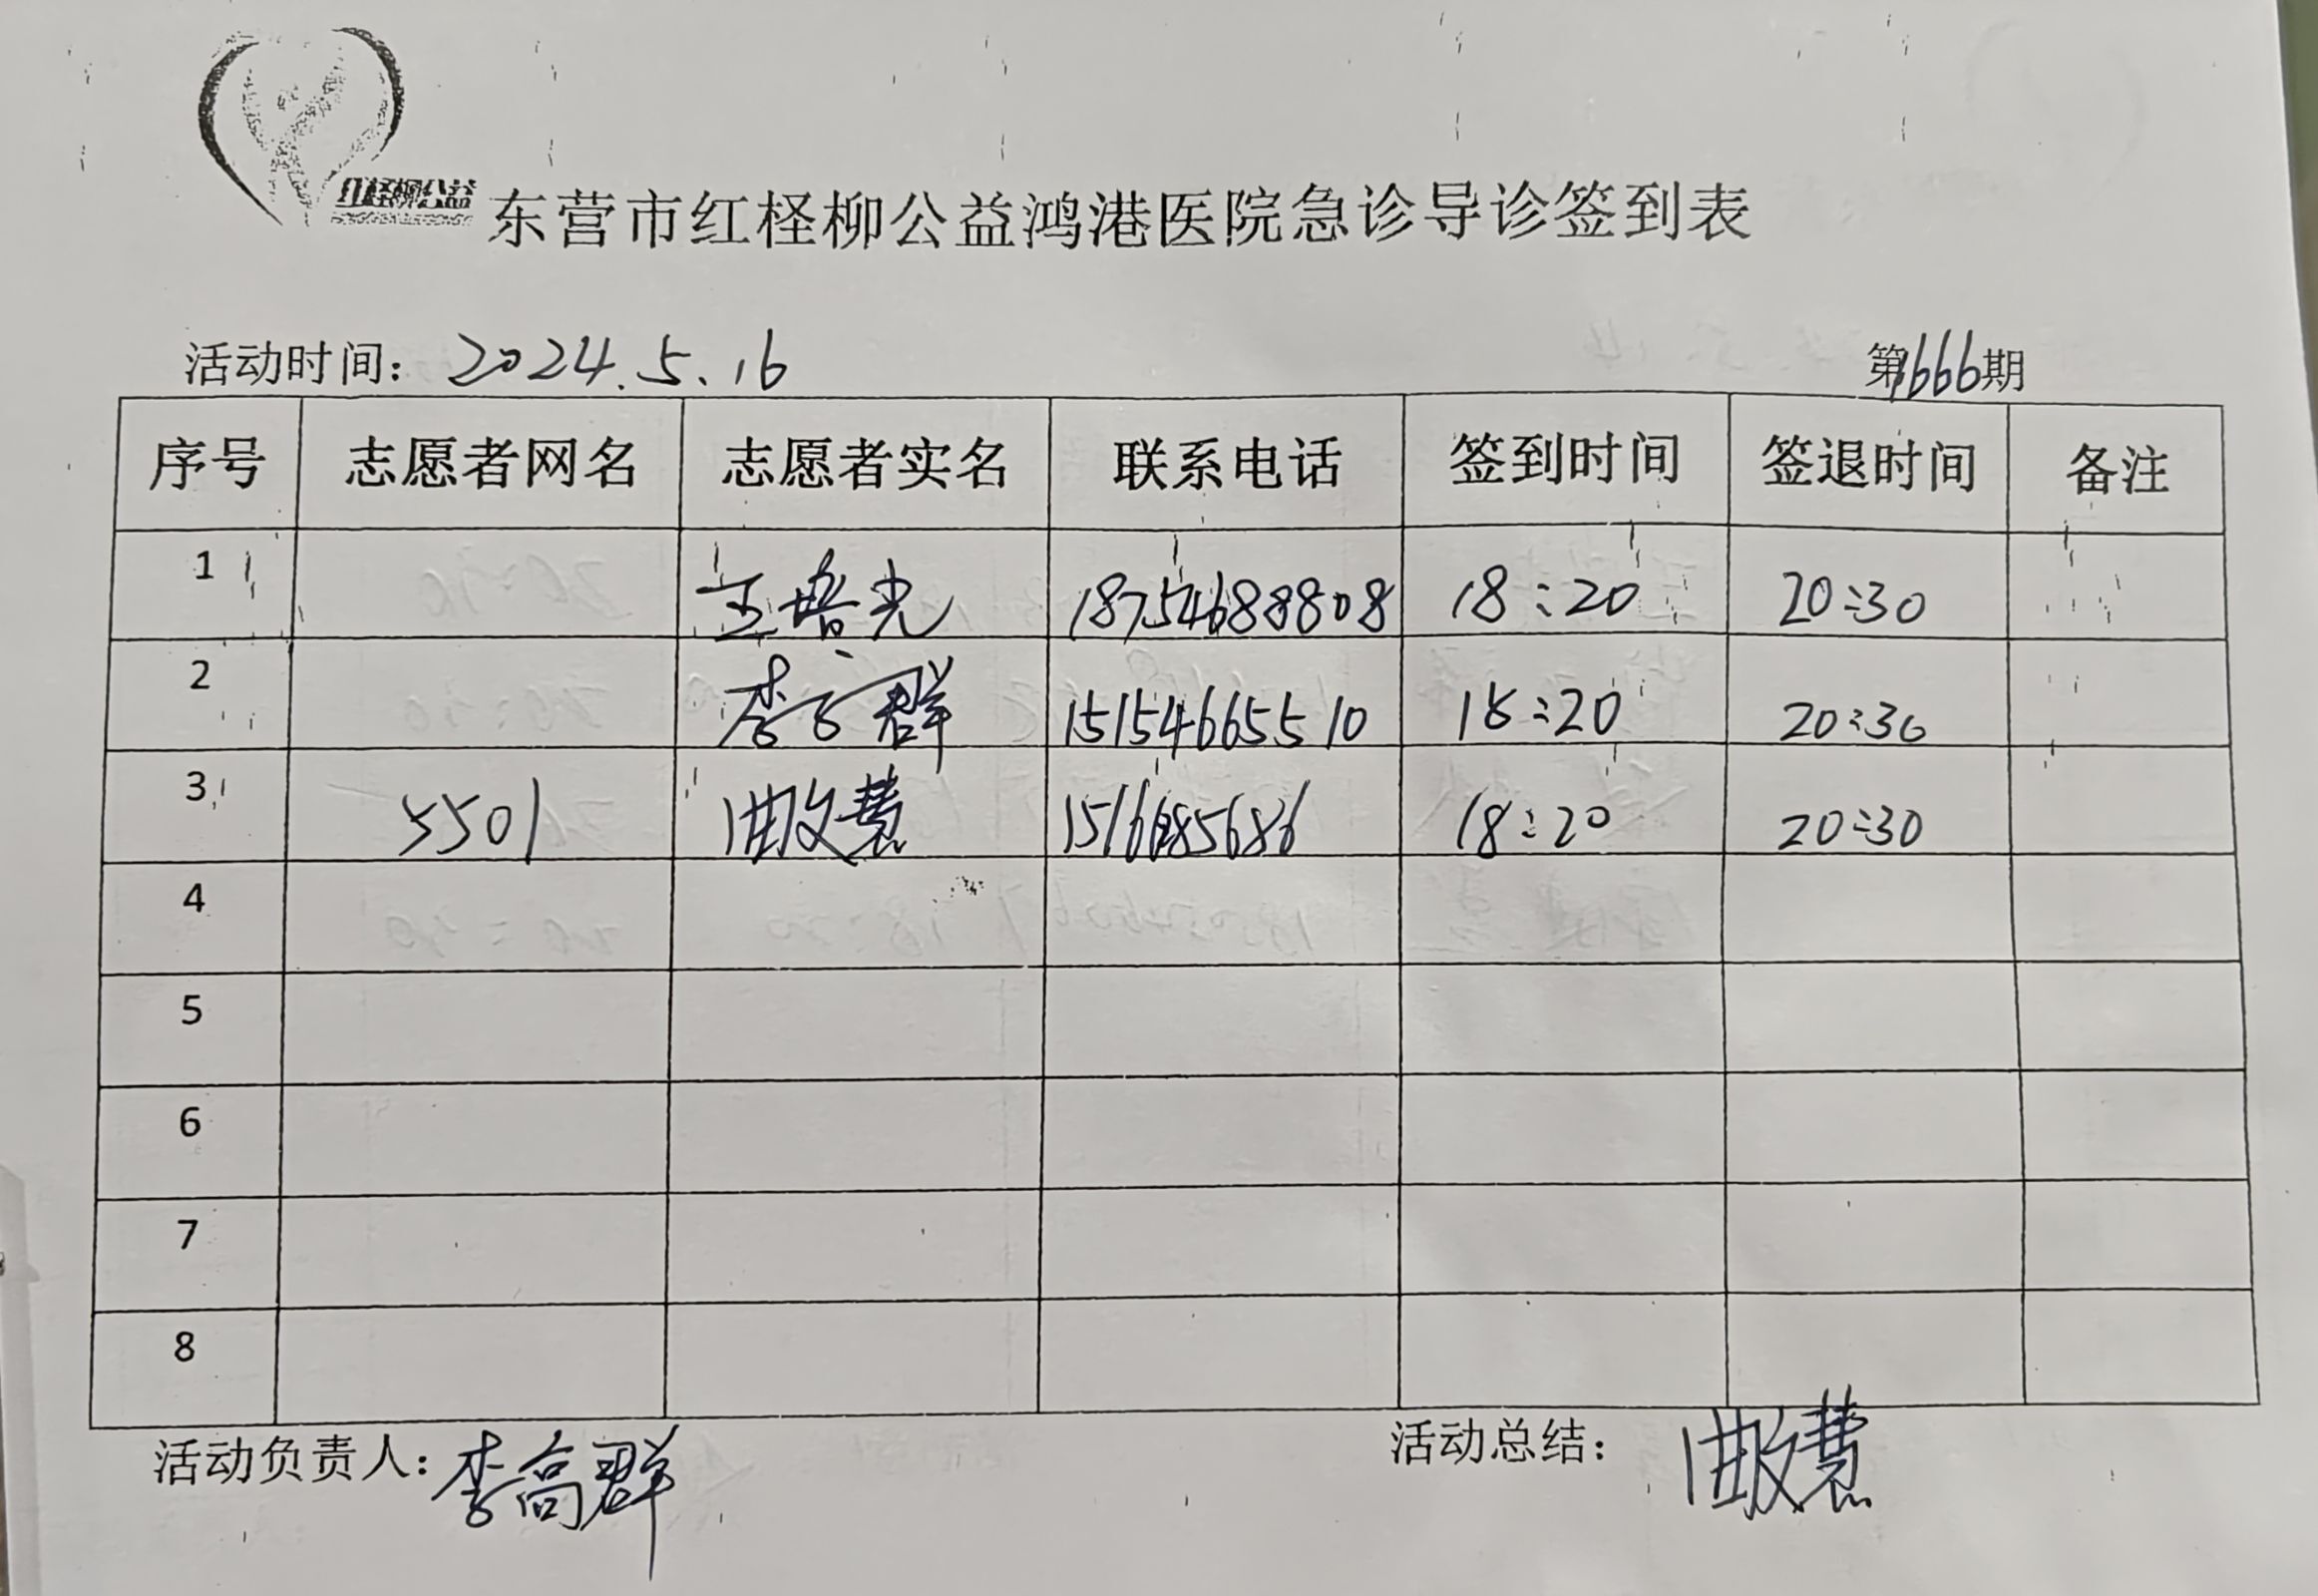 红柽柳公益
东营市红柽柳公益鸿港医院急诊导诊签到表
活动时间: 2024.5.16 第1666期
序号 志愿者网名 志愿者实名 联系电话 签到时间 签退时间 备注
1 王培光 18754688808 18:20 20:30
2 李高群 15154665510 18:20 20:30
3 5501 曲文慧 18:20 20:30
4
5
6
7
8
活动负责人: 李高群 活动总结: 曲文慧